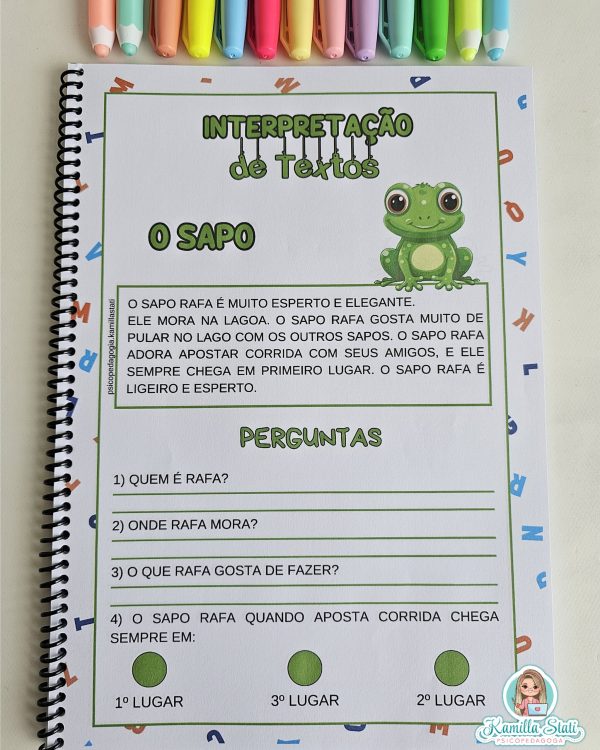 INTERPRETAÇÃO
de Textos
O SAPO
O SAPO RAFA É MUITO ESPERTO E ELEGANTE.
ELE MORA NA LAGOA. O SAPO RAFA GOSTA MUITO DE
PULAR NO LAGO COM OS OUTROS SAPOS. O SAPO RAFA
ADORA APOSTAR CORRIDA COM SEUS AMIGOS, E ELE
SEMPRE CHEGA EM PRIMEIRO LUGAR. O SAPO RAFA É
LIGEIRO E ESPERTO.
psicopedagogia.kamillastati
PERGUNTAS
1) QUEM É RAFA?
2) ONDE RAFA MORA?
3) O QUE RAFA GOSTA DE FAZER?
4) O SAPO RAFA QUANDO APOSTA CORRIDA CHEGA
SEMPRE EM:
1º LUGAR 3º LUGAR 2º LUGAR
Kamilla Stati
PSICOPEDAGOGA